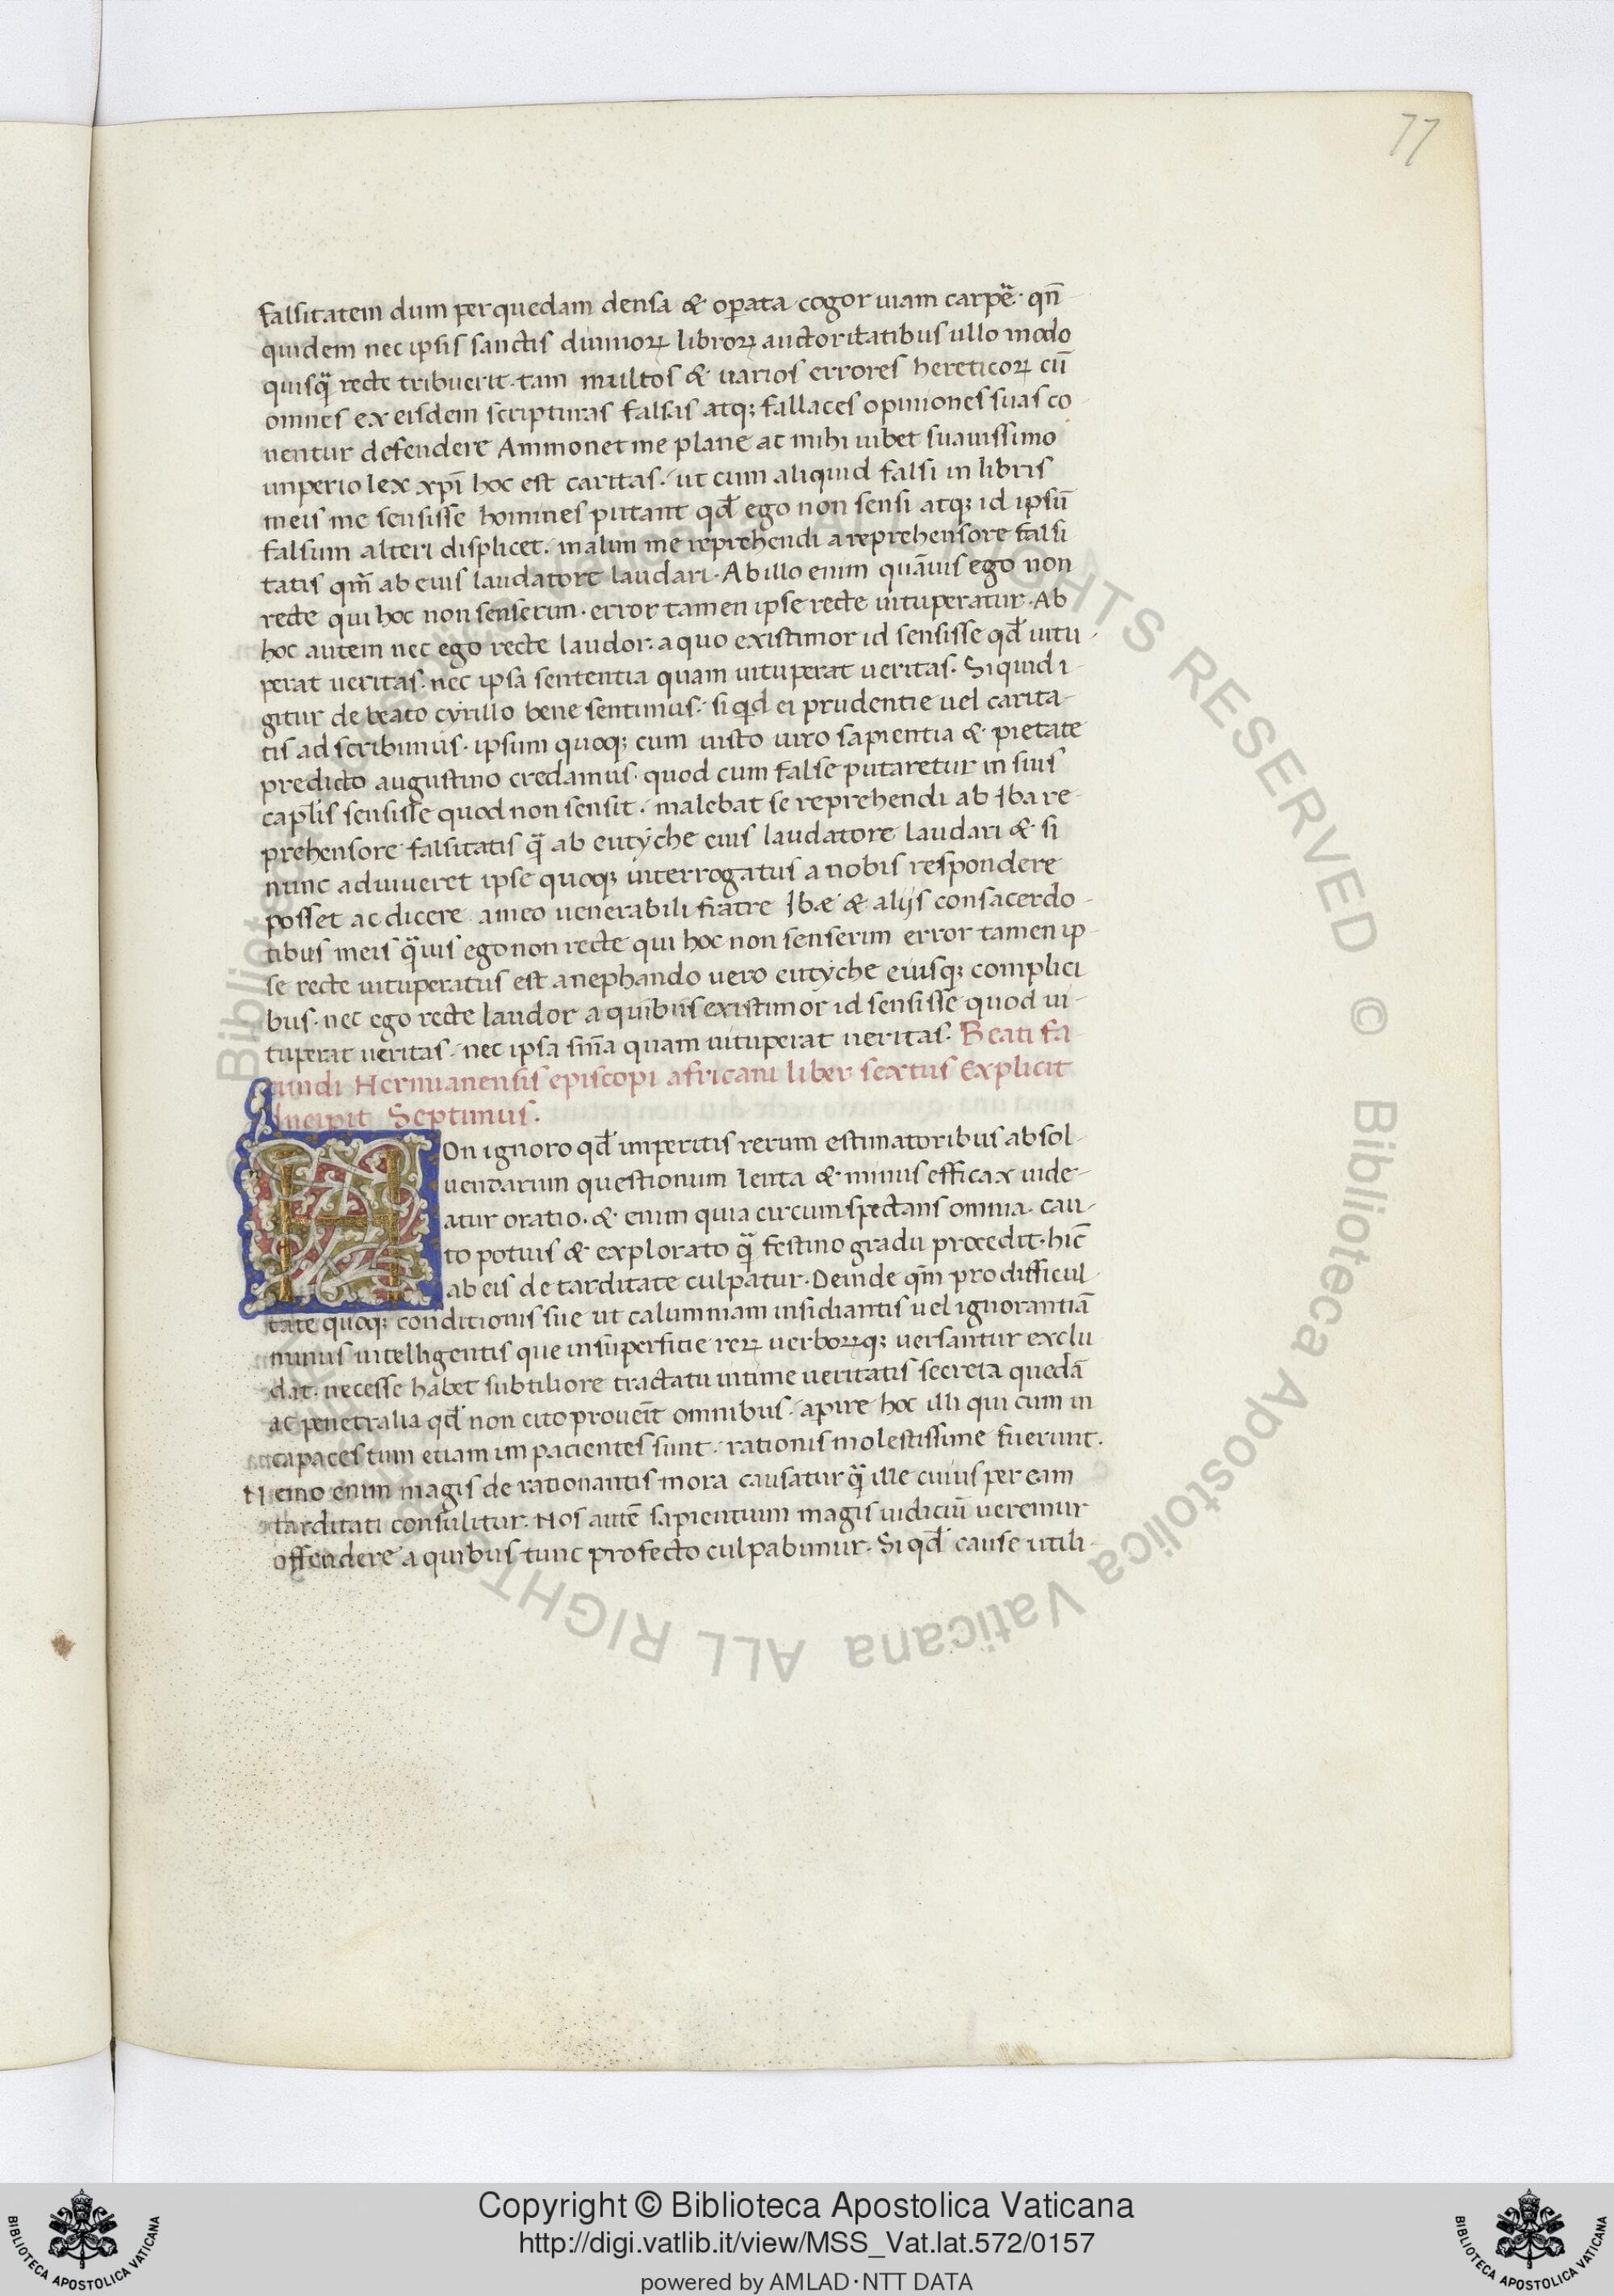 77
falsitatem dum per quedam densa & oꝑata cogor uiam carpe᷑· qn̄
quidem nec ipsis sanctis diuinoꝝ libroꝝ auctoritatibus ullo modo
quisq̃ recte tribuerit· tam multos & uarios errores hereticoꝝ cū
omnes ex eisdem scripturas falsas atqꝫ fallaces opiniones suas co
nentur defendere Ammonet me plane ac mihi iubet suauissimo
imperio lex xp̄i hoc est caritas· ut cum aliquid falsi in libris
meis me sensisse homines putant qđ ego non sensi atqꝫ id ipsū
falsum alteri displicet· malim me reprehendi a reprehensore falsi
tatis qm̄ ab eius laudatore laudari· Ab illo enim quāuis ego non
recte qui hoc non senserim· error tamen ipse recte uituperatur· Ab
hoc autem nec ego recte laudor· a quo existimor id sensisse qđ uitu-
perat ueritas· nec ipsa sententia quam uituperat ueritas· Si quid i-
gitur de beato cyrillo bene sentimus· si qid ei prudentie uel carita-
tis ad scribimus· ipsum quoqꝫ cum iusto uiro sapientia & pietate
predicto augustino credamus· quod cum false putaretur in suis
caplis sensisse quod non sensit· malebat se reprehendi ab Iba re-
prehensore falsitatis q̃ ab eutyche eius laudatore laudari & si
nunc aduiueret ipse quoqꝫ interrogatus a nobis respondere
posset ac dicere a meo uenerabili fratre Ibæ & alijs consacerdo-
tibus meis q̃uis ego non recte qui hoc non senserim error tamen ip-
se recte uituperatus est a nephando uero eutyche eiusqꝫ complici
bus· nec ego recte laudor a quibus existimor id sensisse quod ui-
tuperat ueritas· nec ipsa sn̄ia quam uituperat ueritas· Beati fa-
cundi Hermianensis episcopi africani liber sextus Explicit
Incipit Septimus·
H On ignoro qđ imperitis rerum estimatoribus absol-
uendarum questionum lenta & minus efficax uide-
atur oratio· & enim quia circumspectans omnia· cau-
to potuis & explorato q̃ festino gradu procedit· hic̄
ab eis de tarditate culpatur· Deinde qm̄ pro difficul-
tate quoqꝫ conditionis sue ut calumniam insidiantis uel ignorantiā
minus intelligentis que in superficie reꝝ uerboꝝqꝫ uersantur exclu
dat· necesse habet subtiliore tractatu intime ueritatis secreta quedā
ac penetralia qđ non cito proueīt omnibus· aꝑire hoc illi qui cum in
capaces tum etiam impacientes sunt· rationis molestissime fuerunt·
Nemo enim magis de rationantis mora causatur q̃ ille cuius per eam
tarditati consulitur· Nos autē sapientium magis iudiciū ueremur
offendere a quibus tunc profecto culpabimur· Si qđ cause utili-
Biblioteca Apostolica Vaticana ALL RIGHTS RESERVED ©
Biblioteca Apostolica Vaticana ALL RIGHTS
BIBLIOTECA APOSTOLICA VATICANA
Copyright © Biblioteca Apostolica Vaticana
http://digi.vatlib.it/view/MSS_Vat.lat.572/0157
powered by AMLAD·NTT DATA
BIBLIOTECA APOSTOLICA VATICANA